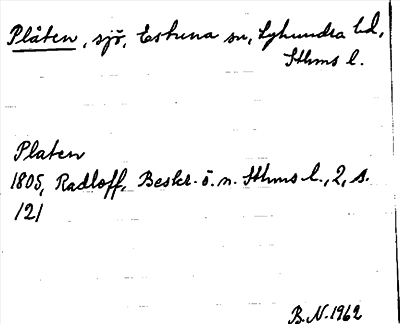 Plåten, sjö, Estuna sn, Lyhundra hd,
Sthms l.
Platen
1805, Radloff, Beskr. ö. n. Sthms l., 2, s.
121
B.N. 1962